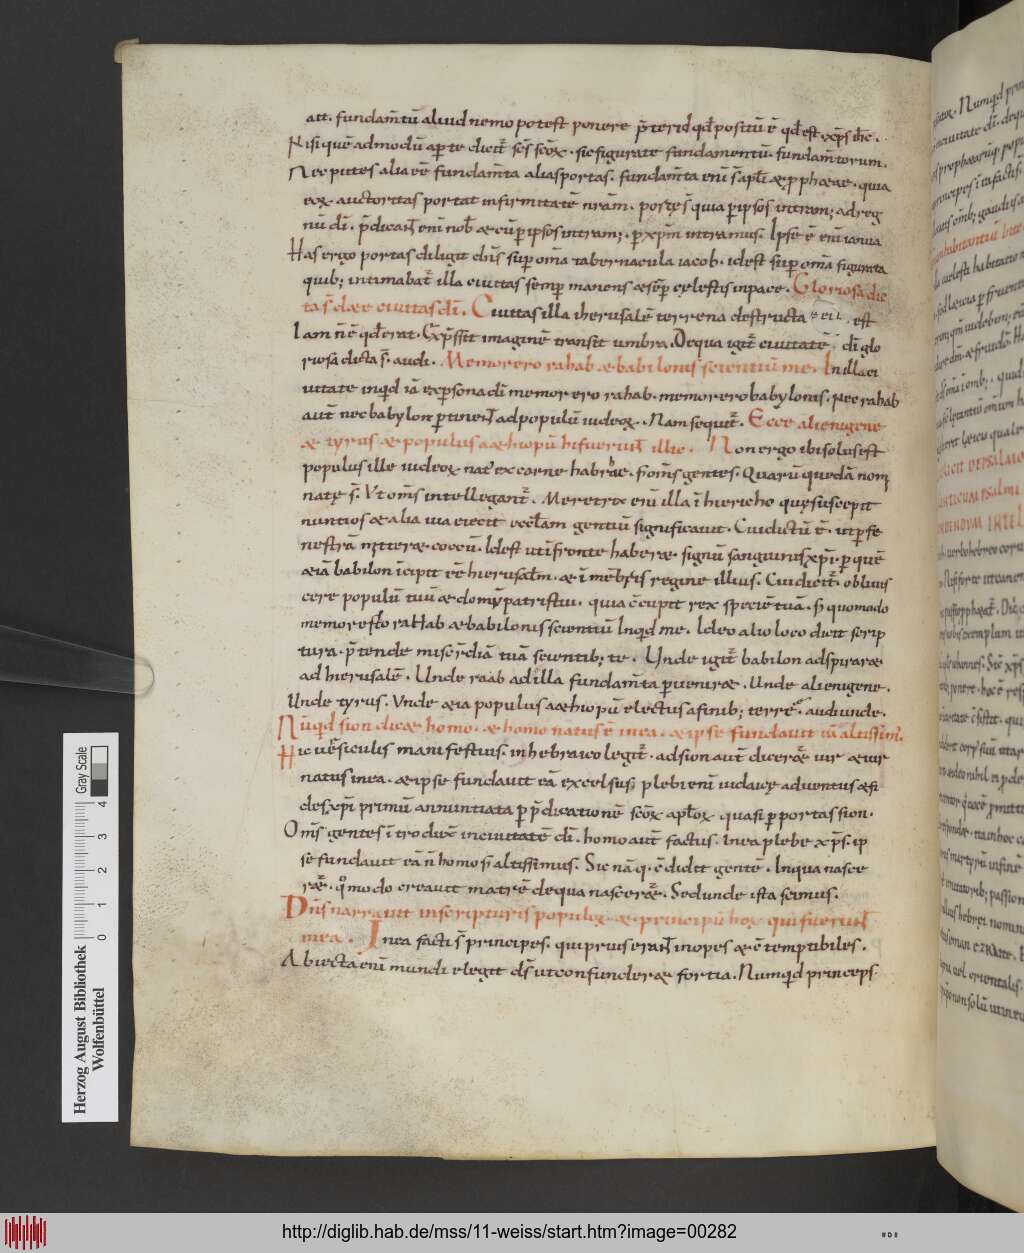 ait. fundam̄tū aliud nemo potest ponere p̄ter id qd̄ positū ē qd̄ est xp̄s ih̄c.
Nisi quēadmodū aperte dicit̄ sc̄s sc̄oꝝ. sic figurate fundamentū. fundam̄torum.
Nec putes alia eē fundam̄ta alias portas. fundam̄ta enī s̄ apl̄i & pphetae. quia
eoꝝ auctoritas portat infirmitatē nr̄am. portę s̄ quia p ipsos intram; ad reg
nū dī. p̄dicant enī nob̄ & cū p ipsos intram;. p xp̄m intramus. Ipse ē enī ianua
Has ergo portas diligit dn̄s sup om̄a tabernacula iacob. idest sup om̄a figurata
quib; intimabat̄ illa ciuitas semp manens & sēp cęlestis in pace. Gloriosa dic
ta s̄ de te ciuitas dī. Ciuitas illa iherusalē terrena destructa est
Iam n̄ ē qd̄ erat. Exp̄ssit imaginē transit umbra. De qua igit̄ ciuitate dī glo
riosa dicta s̄. audi. Memor ero rahab & babilonis scientiū me. In illa ci
uitate inqd iā ex persona dī memor ero rahab. memor ero babylonis. Nec rahab
aut̄ nec babylon ptinent ad populū iudeoꝝ. Nam sequit̄. Ecce alienigene
& tyrus & populus aethiopū hi fuerunt illic. Non ergo ibi solus ē ist
populus ille iudeoꝝ nat' ex carne habrae. s̄ om̄s gentes. Quarū quedā nom
natę s̄. Vt om̄s intellegant̄. Meretrix enī illa ī hiericho quę suscepit
nuntios & alia uia eiecit eccl̄am gentiū significauit. Cui dictū ē. ut p fe
nestrā mitter& coccū. Idest ut ī fronte haber& signū sanguinis xp̄i. p quē
& iā babilon īcipit eē hierusal̄m. & ī mēbris regine illius. Cui dicit̄. obliuis
cere populū tuū & domū patris tui. quia c̄cupit rex speciē tuā. s̄ quomodo
memor est dō rahab & babilonis scientiū Inqd me. Ideo alio loco dicit scrip
tura. p̄tende misc̄diā tuā scientib; te. Unde igit̄ babilon adspirar&
ad hierusalē. Unde raab ad illa fundam̄ta puenir&. Unde alienigene.
Unde tyrus. Vnde & ia populus aethiopū electus a finib; terre. audi unde.
Nūqd sion dic& homo. & homo natus ē in ea. & ipse fundauit eā altissim'.
Hic uersiculis manifestius. in hebraico legit̄. ad sion aut̄ dicet̄ uir & uir
natus in ea. & ipse fundauit eā excelsus. plebi enī iudaice aduentus & fi
des xp̄i primū annuntiata p p̄dicationē sc̄oꝝ apl̄oꝝ quasi p portas sion.
Om̄s gentes ītroduc̄ in ciuitatē dī. homo aut̄ factus. in ea plebe xp̄s. ip
se fundauit eā n̄ homo s̄ altissimus. Sic nāq. c̄didit gentē. In qua nasce
r&. qmodo creauit matrē de qua nascer&. Sed unde ista scimus.
Dn̄s narrauit in scripturis populoꝝ & principū hoꝝ qui fuerunt
in ea. In ea facti s̄ principes. qui prius erant inopes & c̄temptibiles.
Abiecta enī mundi elegit dī ut confunder& fortia. Numqd princeps
Herzog August Bibliothek
Wolfenbüttel
0 1 2 3 4
Gray Scale
http://diglib.hab.de/mss/11-weiss/start.htm?image=00282